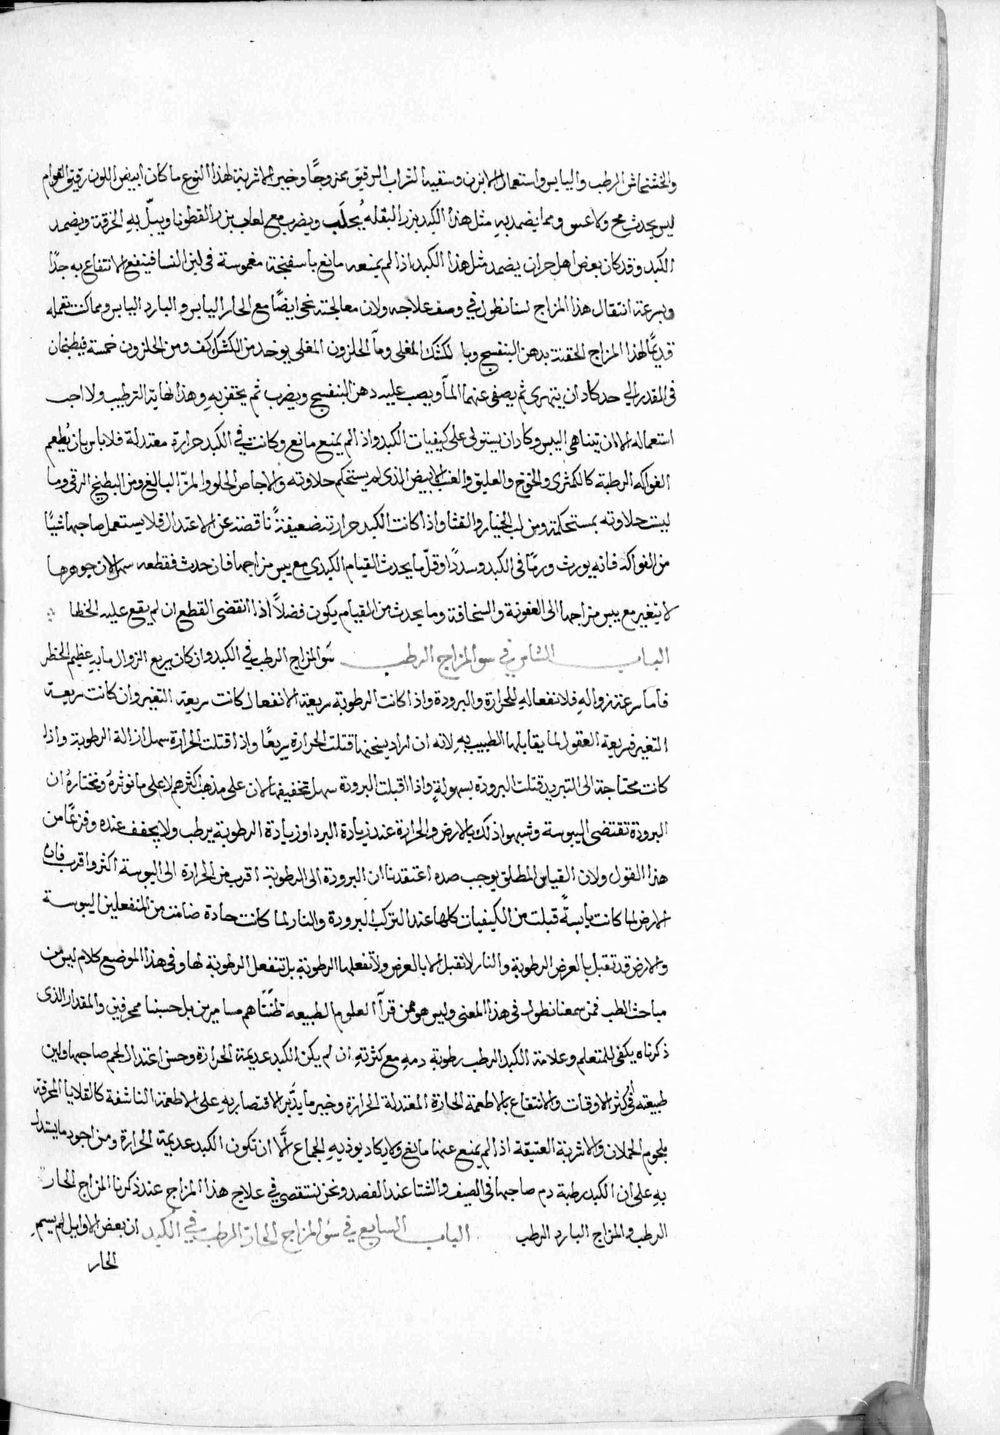 والخشخاش الرطب واليابس واستعمال الابزن وسقيه الشراب الرقيق ممزوجًا وخير الاشربة لهذا النوع ما كان ابيض اللون رقيق القوام
ليس بحدث مح ولا غسق ومما يضمد به مثل هذا الكبد بزر البقله يُحلَب ويضرب مع لعاب بزر القطونا ويبلّ به الخرقة ويضمد
الكبد وقد كان بعض اهل حران يضمد مثل هذا الكبد اذا لم يمنعه مانع باسفنجة مغموسة في لبن النسا فينفع الانتفاع به جدًا
وبسرعة انتقال هذا المزاج لسنا نطول في وصف علاجه ولان معالجته نحى ايضًا مع الحار اليابس والبارد اليابس ومما كنت تعمله
قديمًا لهذا المزاج الحقنة بدهن البنفسج وبا لكشك المغلى وما الحلزون المغلى يوخذ من الكشك كف ومن الحلزون خمسة فيطبخان
في المقدر الى حد كاد ان يتهرى ثم يصفى عنهما الماء ويصب عليه دهن البنفسج ويضرب ثم يحقن به وهذا نهاية الترطيب ولا احب
استعماله الا ان يتناهى اليبس وكاد ان يستولى على كيفيات الكبد واذا لم يمنع مانع وكانت في الكبد حرارة معتدلة فلا باس بان يُطعم
الفواكه الرطبة كالكمثرى والخوخ والعليق والعنب الابيض الذي لم يستحكم حلاوته والاجاص الحلو والمزّ البالغ ومن البطيخ الرقى وما
ليست حلاوته بمستحكمة ومن لب الخيار والقثا واذا كانت الكبد حرارته ضعيفةً ناقصة عن الاعتدال فلا يستعمل صاحبها شيئًا
من الفواكه فانه يورث ورمًا في الكبد وسددًا وقلّ ما يحدث القيام الكبدي مع يبس مزاجها فان حدث فقطعه سهل لان جوهرها
لا يتغير مع يبس مزاجها الى العفونة والسخافة وما يحدث من القيام يكون فضلاً اذا انقضى القطع ان لم يقع عليه الخطا
الباب الثامن في سو المزاج الرطب سُو المزاج الرطب في الكبد وان كان سريع الزوال ما به عظيم الخطر
فاما سرعة زواله فلانفعاله للحرارة والبرودة واذا كانت الرطوبة سريعة الانفعال كانت سريعة التغير وان كانت سريعة
التغير فسريعة القفول لما يقابلها الطبيب به لانه ان اراد يسخنها قتلت الحرارة سريعًا واذا قتلت الحرارة سهل ازالة الرطوبة واذا
كانت محتاجة الى التبريد قتلت البرودة بسهولة واذا اقبلت البرودة سهل تخفيفها لان على مذهب اكثرهم لا على ما نوثره ونختاره ان
البرودة تقتضى اليبوسة وشبهوا ذلك بالارض والحرارة عند زيادة البرد او زيادة الرطوبة يرطب ولا يجفف عنده وفزعًا من
هذا القول ولان القياس المطلق يوجب صده اعتقدنا ان البرودة الى الرطوبة اقرب من الحرارة الى اليبوسة اكثر واقرب فان
الارض لما كانت يابسةً قبلت من الكيفيات كلها عند التركب البرودة والنار لما كانت حادة ضامت من المنفعلين اليبوسة
والارض قد تقبل بالعرض الرطوبة والنار لا تقبل الا بالعرض ولا تفعلها الرطوبة بل تنفعل الرطوبة لها وفي هذا الموضع كلام ليس من
مباحث الطب فمن سمعنا نطول في هذا المعنى وليس هو ممن قرأ العلوم الطبيعه ظننّا هم مسامرين بل حسبنا محرفين والمقدار الذى
ذكرناه يكفى للمتعلم وعلامة الكبد الرطب رطوبة دمه مع كثرته ان لم يكن الكبد عديمة الحرارة وحسن اعتدال لحم صاحبها ولين
طبيعته في اكثر الاوقات والانتفاع بالاطعمة الحارة المعتدلة الحرارة وخير ما يدبّر الاقتصار به على الاطعمة الناشفة كالقلايا المحرفة
بلحوم الحملان والاشربة العتيقة اذا لم يمنع عنها مانع ولا يكاد يوذيه الجماع الّا ان تكون الكبد عديمة الحرارة ومن اجود ما يستدل
به على ان الكبد رطبة دم صاحبها في الصيف والشتا عند الفصد ونحن نستقصى في علاج هذا المزاج عند ذكرنا المزاج الحار
الرطب والمزاج البارد الرطب الباب السابع في سُو المزاج الحارّ الرطب في الكبد ان بعض الاوايل لم يسم
الحار